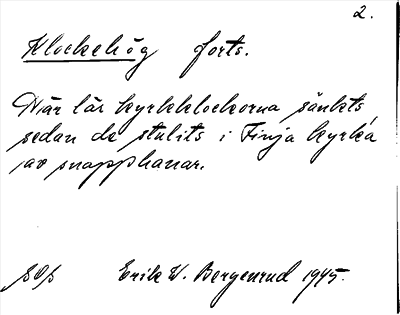 2.
Klockehög forts.
Där lär kyrkklockorna sänkts
sedan de stulits i Finja kyrka
av snapphanar.
Erik W. Bergenrud 1945.